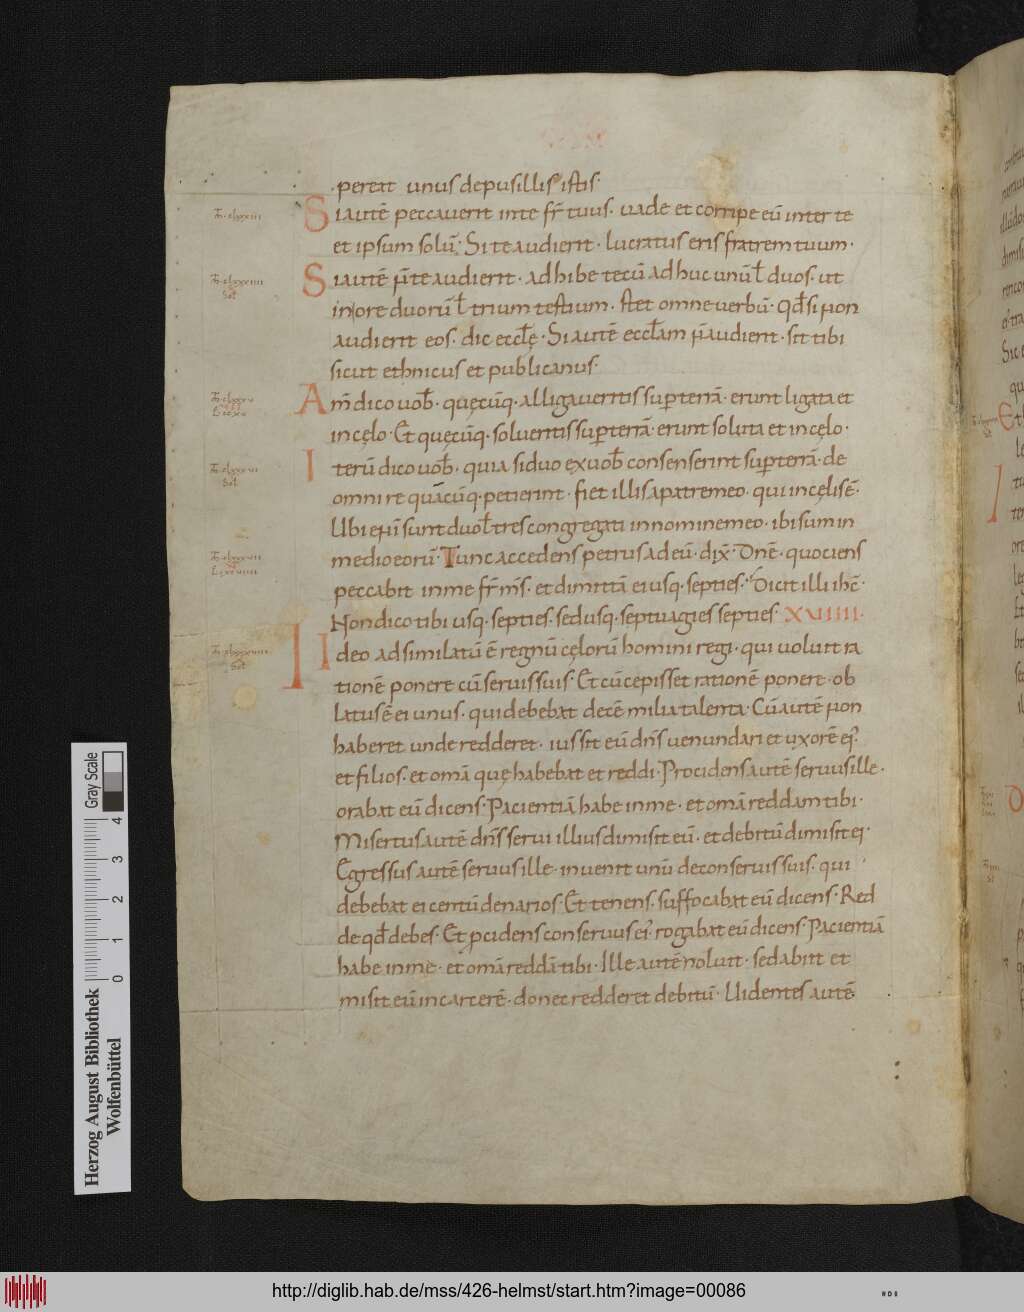 pereat unus de pusillis istis·
Si autē peccauerit in te fr̄ tuus· uade et corripe eū inter te
et ipsum solū· Si te audierit· lucratus eris fratrem tuum·
Si autē ñ te audierit· adhibe tecū adhuc unū ł duos· ut
in ore duorū ł trium testium· stet omne uerbū· Qđ si non
audierit eos· dic ecclę· Si autē eccłam ñ audierit· sit tibi
sicut ethnicus et publicanus·
Am̄ dico uob̄· quęcūq· alligaueritis sup terrā· erunt ligata et
in cęlo· Et quęcūq· solueritis sup terrā· erunt soluta et in cęlo·
Iterū dico uob̄· quia si duo ex uob̄ consenserint sup terrā· de
omni re quācūq· petierint· fiet illis a patre meo· qui in cęlis ē·
Ubi eni sunt duo ł tres congregati in nomine meo· ibi sum in
medio eorū· Tunc accedens petrus ad eū· dix̄· Dnē· quociens
peccabit in me fr̄ m̄s· et dimittā ei usq· septies· Dicit illi ih̄c·
Non dico tibi usq· septies· sed usq· septuagies septies· XVIIII·
Ideo adsimilatū ē regnū cęlorū homini regi· qui uoluit ra
tionē ponere cū seruis suis· Et cū cepisset rationē ponere· ob
latus ē ei unus· qui debebat decē milia talenta· Cū autē non
haberet unde redderet· iussit eū dn̄s uenundari et uxorē ei·
et filios· et om̄a quę habebat et reddi· Procidens autē seruus ille·
orabat eū dicens· Pacientiā habe in me· et om̄a reddam tibi·
Misertus autē dn̄s serui illius dimisit eū· et debitū dimisit ei·
Egressus autē seruus ille· inuenit unū de conseruis suis· qui
debebat ei centū denarios· Et tenens· suffocabat eū dicens· Red
de qđ debes· Et pcidens conseruus ei· rogabat eū dicens· Pacientiā
habe in me· et om̄a reddā tibi· Ille autē noluit· sed abiit et
misit eū in carcerē· donec redderet debitū· Uidentes autē
Gray Scale
0 1 2 3 4
Herzog August Bibliothek
Wolfenbüttel
http://diglib.hab.de/mss/426-helmst/start.htm?image=00086